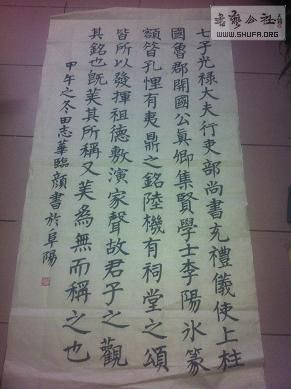 七子光禄大夫行吏部尚書充禮儀使上柱
國魯郡開國公真卿集賢學士李陽冰篆
額昔孔悝有夷鼎之銘陸機有祠堂之頌
皆所以發揮祖德敷演家聲故君子之觀
其銘也既美其所稱又美為無而稱之也
甲午之冬田志華臨顏書於阜陽
WWW.SHUFA.ORG